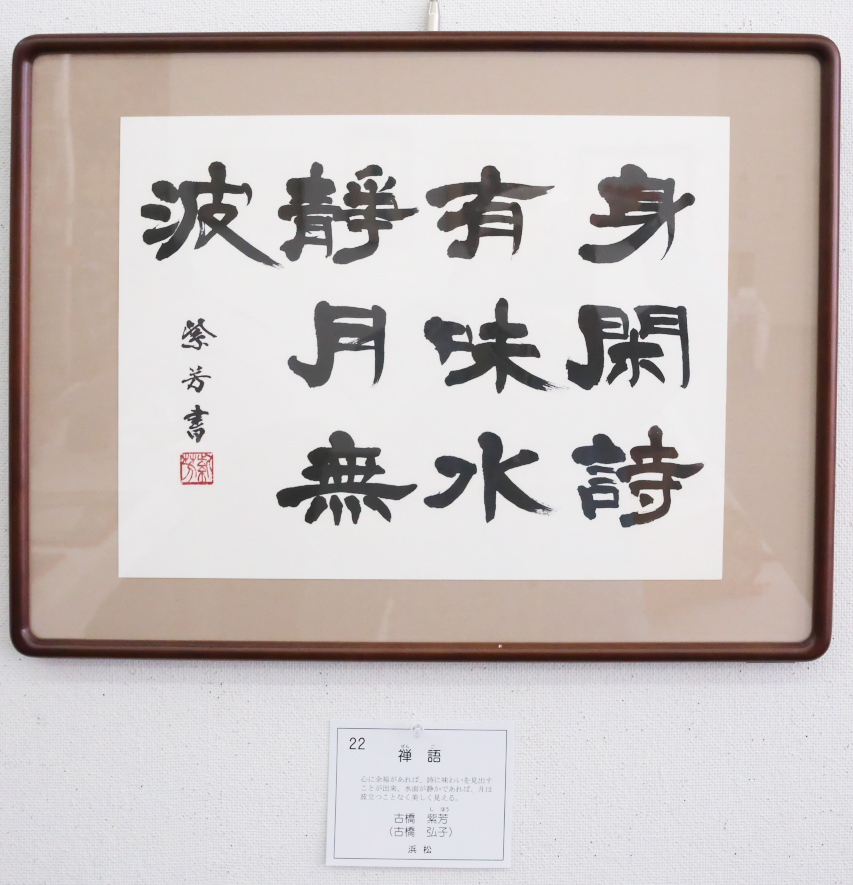 身閑詩
有味水
靜月無
波
紫芳書
紫芳
22
ぜん ご
禅語
心に余裕があれば、詩に味わいを見出す
ことが出来、水面が静かであれば、月は
波立つことなく美しく見える。
し ほう
古橋 紫芳
(古橋 弘子)
浜松